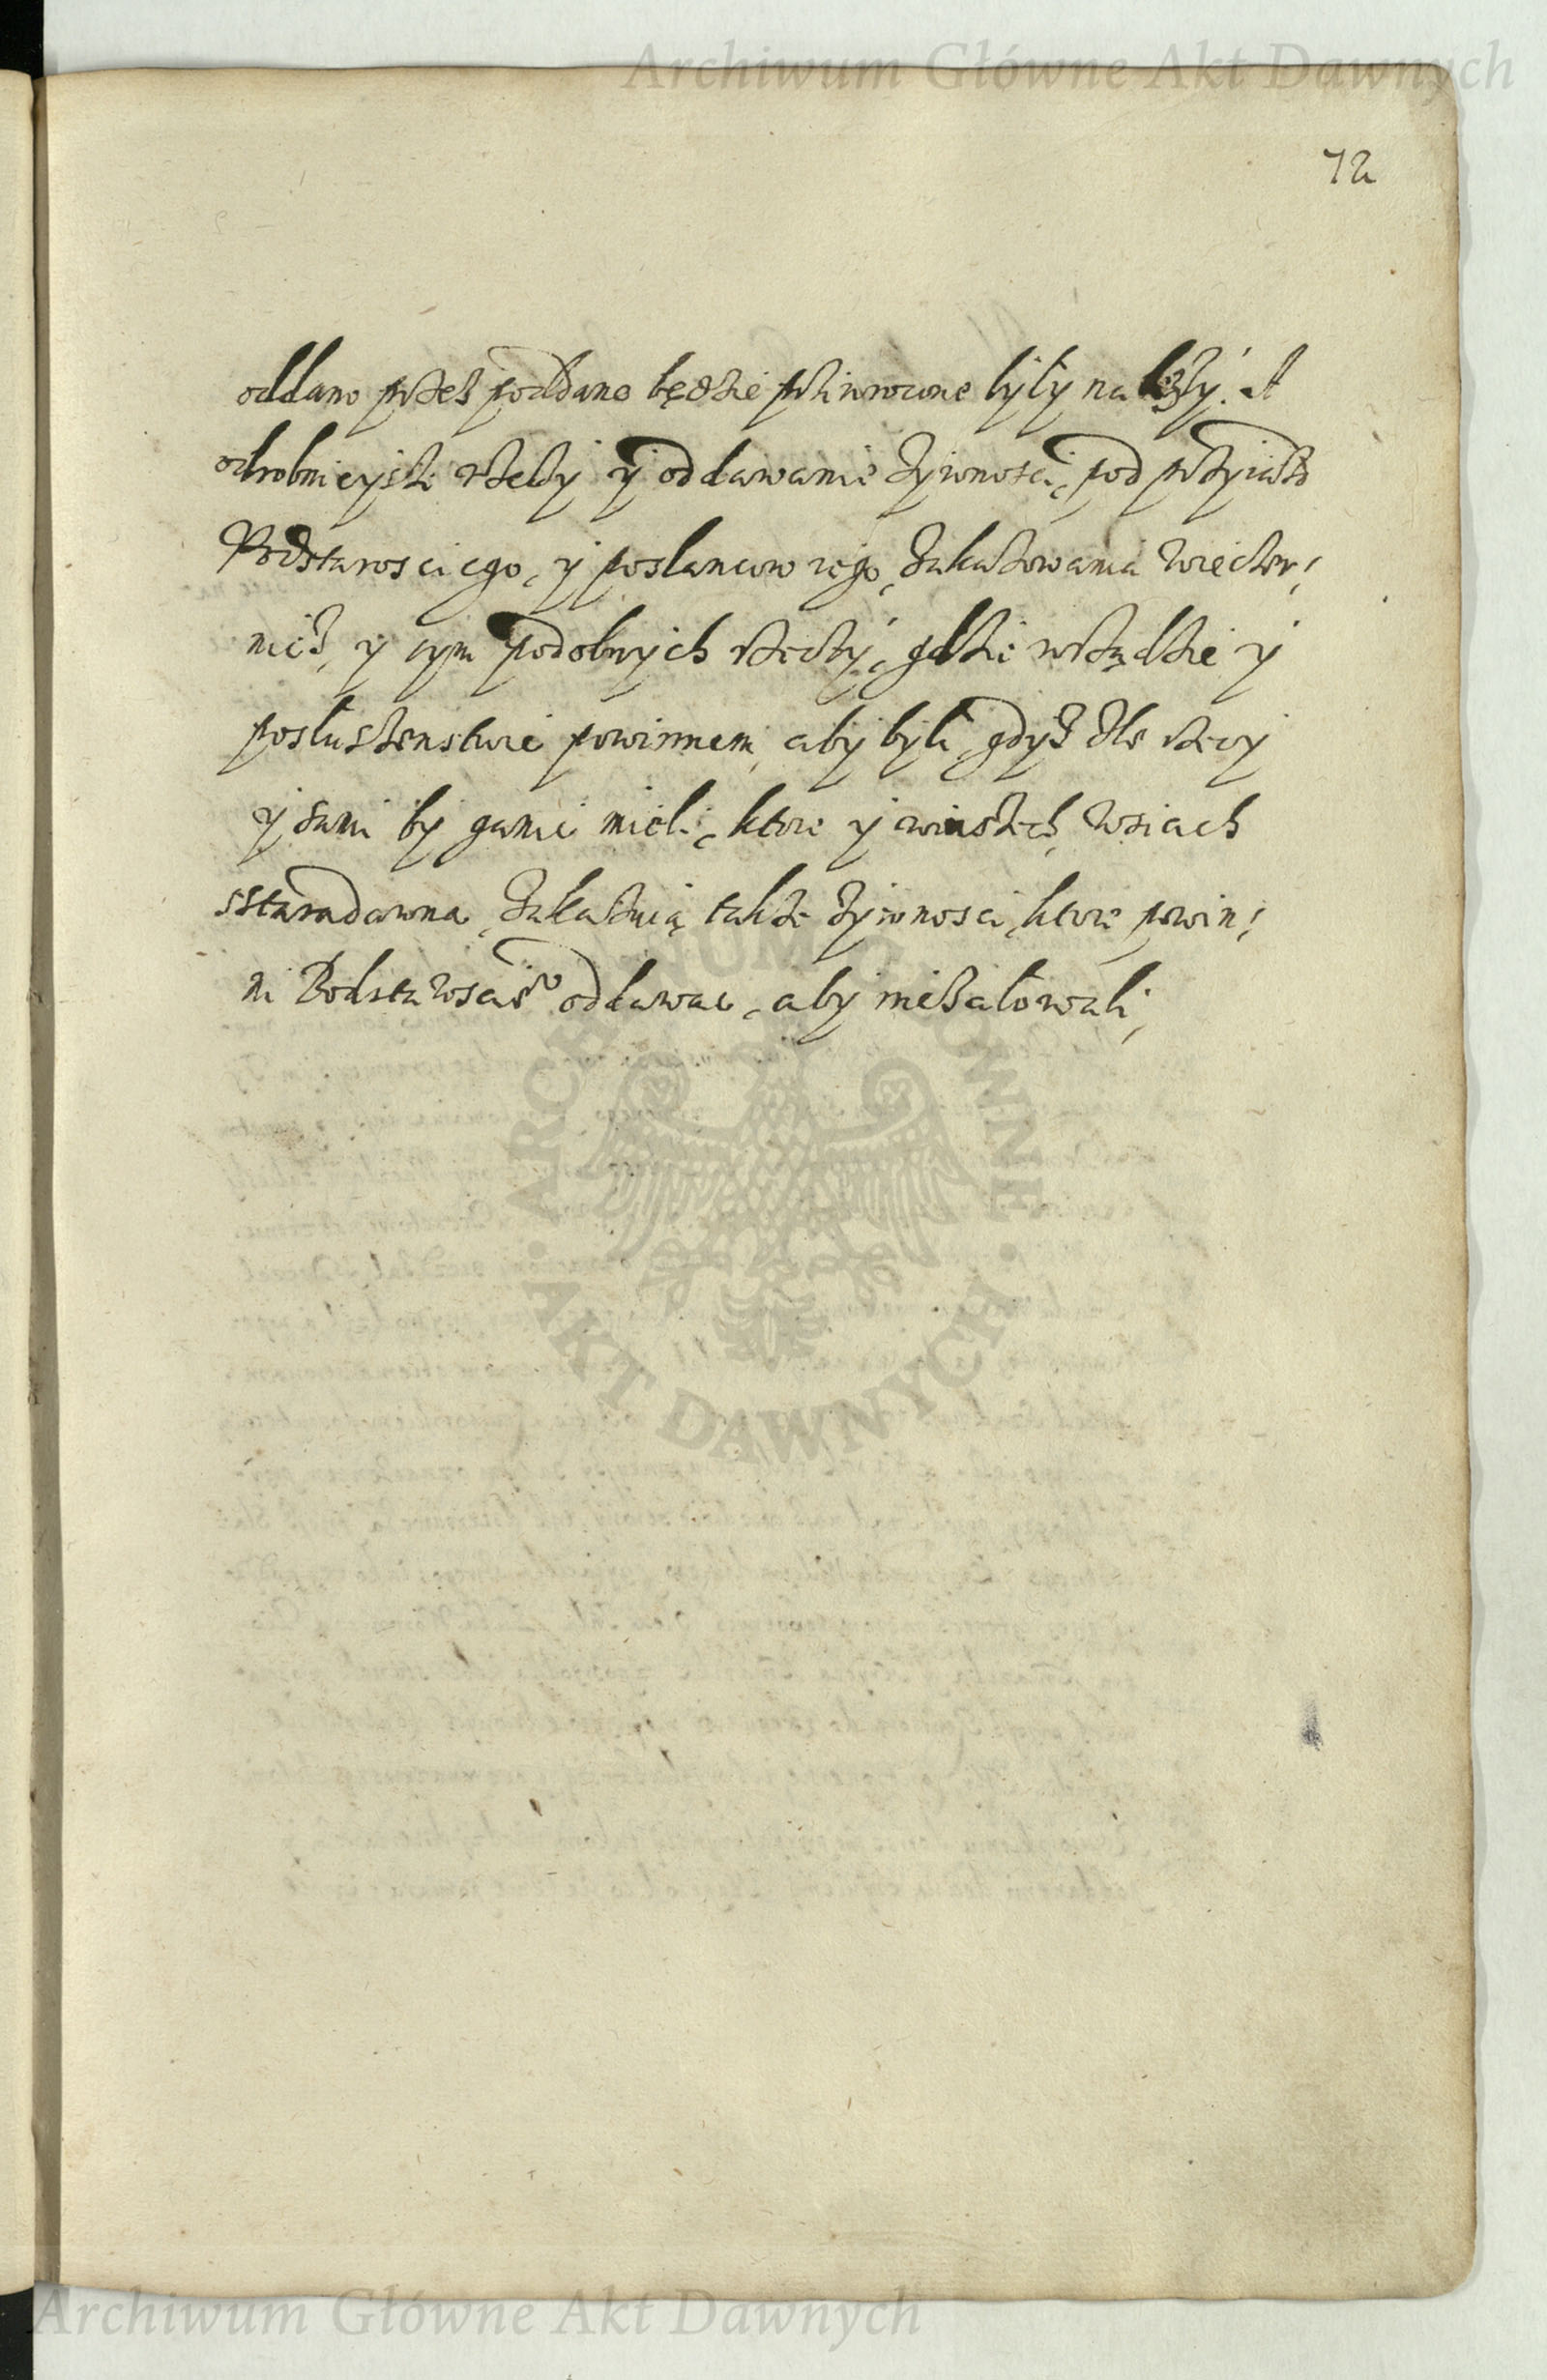 Archiwum Główne Akt Dawnych
72
oddano przez poddane będzie prziwrocone były należy. A
odrobnieysze rzeczy y oddawanie żywnosci, pod przyiazd
Podstarosciego, y poslancow iego, zakazowania wieczor:
niez, y tym podobnych rzeczy, gdzie wszędzie y
posłuszenstwie powinnem, aby byli, gdyż złe rzeczy
y sami by ganic mieli, ktore y winszech wsiach
sstaradawna, zakazuią także żywnosci, ktore powin:
ni Podstarosciemu oddawac, aby nieżałowali,
ARCHIWUM GŁÓWNE · AKT DAWNYCH ·
Archiwum Główne Akt Dawnych